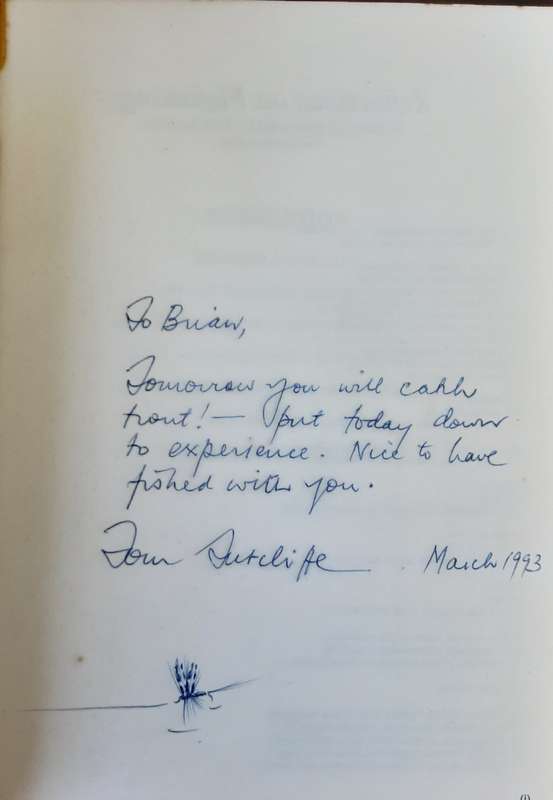 To Brian,
Tomorrow you will catch
trout! — put today down
to experience. Nice to have
fished with you.
Tom Sutcliffe March 1993
(i)